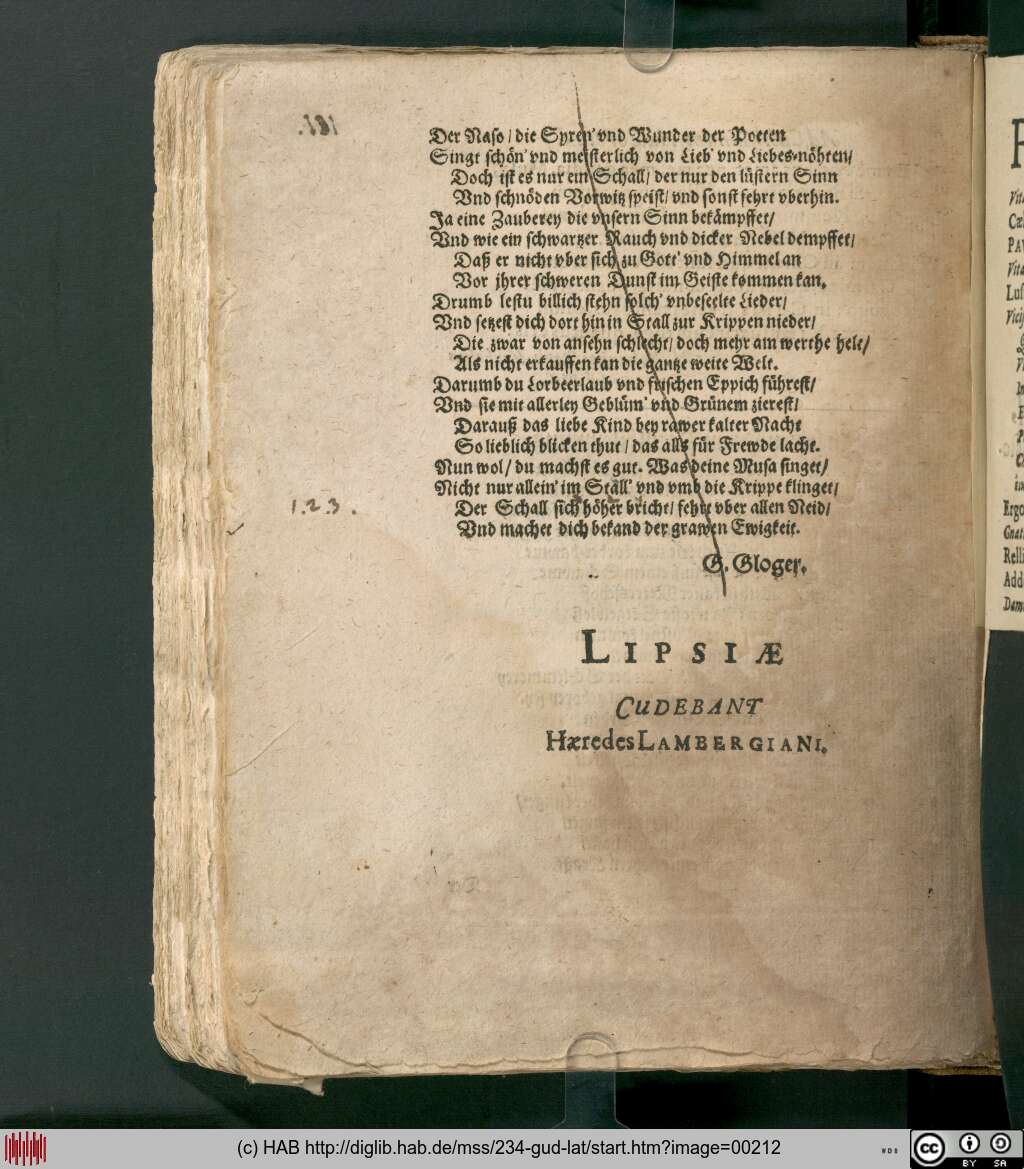 Der Naso / die Syren' vnd Wunder der Poeten
Singt schön' vnd meisterlich von Lieb' vnd Liebes-nöhten /
Doch ist es nur ein Schall / der nur den lüstern Sinn
Vnd schnöden Vorwitz speist / vnd sonst fehrt vberhin.
Ja eine Zauberey die vnsern Sinn bekämpffet /
Vnd wie ein schwartzer Rauch vnd dicker Nebel dempffet /
Daß er nicht vber sich zu Gott' vnd Himmel an
Vor jhrer schweren Dunst im Geiste kommen kan.
Drumb lestu billich stehn solch' vnbeseelte Lieder /
Vnd setzest dich dort hin in Stall zur Krippen nieder /
Die zwar von ansehn schlecht / doch mehr am werthe helt /
Als nicht erkauffen kan die gantze weite Welt.
Darumb du Lorbeerlaub vnd frischen Eppich führest /
Vnd sie mit allerley Geblüm' vnd Grünem zierest /
Darauß das liebe Kind bey rawer kalter Nacht
So lieblich blicken thut / das alls für Frewde lacht.
Nun wol / du machst es gut. Was deine Musa singet /
Nicht nur allein' im Stall' vnd vmb die Krippe klinget /
1. 2. 3.
Der Schall sich höher bricht / fehrt vber allen Neid /
Vnd machet dich bekand der grawen Ewigkeit.
G. Gloger.
LIPSIÆ
CUDEBANT
Hæredes LAMBERGIANI.
(c) HAB http://diglib.hab.de/mss/234-gud-lat/start.htm?image=00212
cc
BY SA